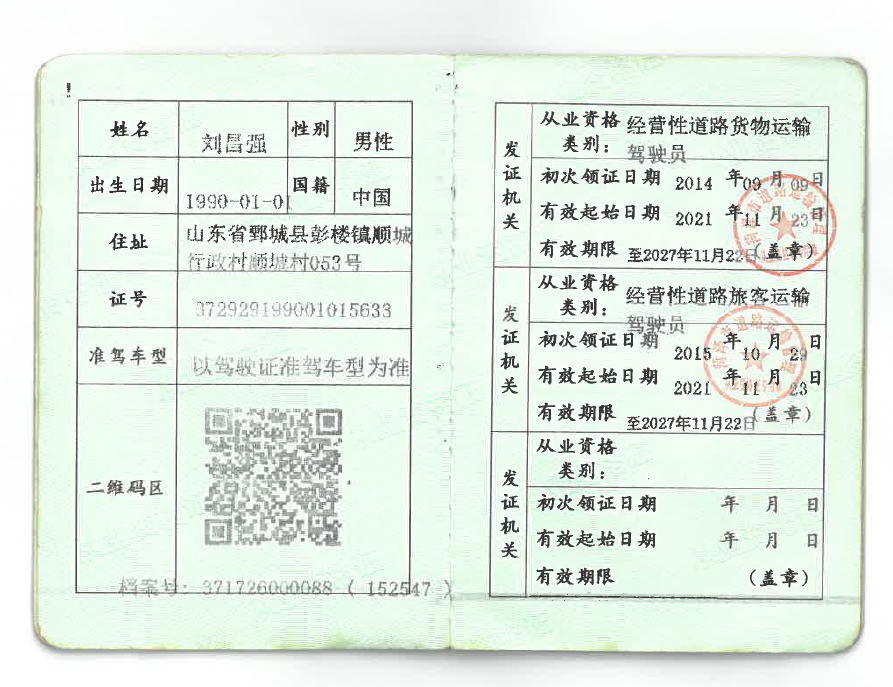 姓名 刘昌强 性别 男性
出生日期 1990-01-01 国籍 中国
住址 山东省鄄城县彭楼镇顺城
行政村顺城村053号
证号 372929199001015633
准驾车型 以驾驶证准驾车型为准
二维码区
档案号: 371726000088 ( 152547 )
发证机关
从业资格类别: 经营性道路货物运输
驾驶员
初次领证日期 2014 年 09 月 09 日
有效起始日期 2021 年 11 月 23 日
有效期限 至2027年11月22日 (盖章)
发证机关
从业资格类别: 经营性道路旅客运输
驾驶员
初次领证日期 2015 年 10 月 29 日
有效起始日期 2021 年 11 月 23 日
有效期限 至2027年11月22日 (盖章)
发证机关
从业资格类别:
初次领证日期 年 月 日
有效起始日期 年 月 日
有效期限 (盖章)